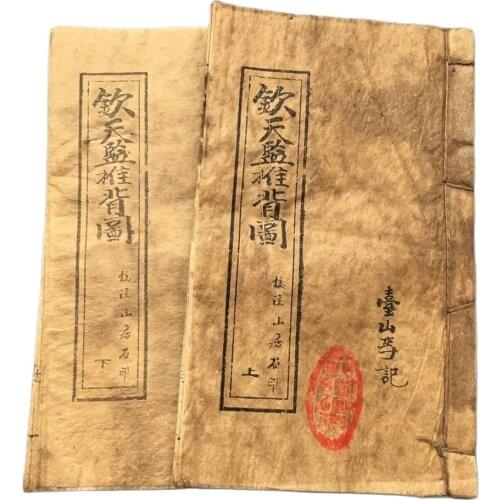 欽天監推背圖
校注山房石印
上
臺山李記
欽天監推背圖
校注山房石印
下